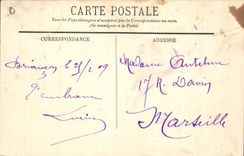 CARTE POSTALE
Tous les Pays étrangers n'acceptent pas la Correspondance au recto.
(Se renseigner à la Poste).
CORRESPONDANCE
Briançon le 21/2 09
J'embrasse
ADRESSE
Madame
17 R.
Marseille